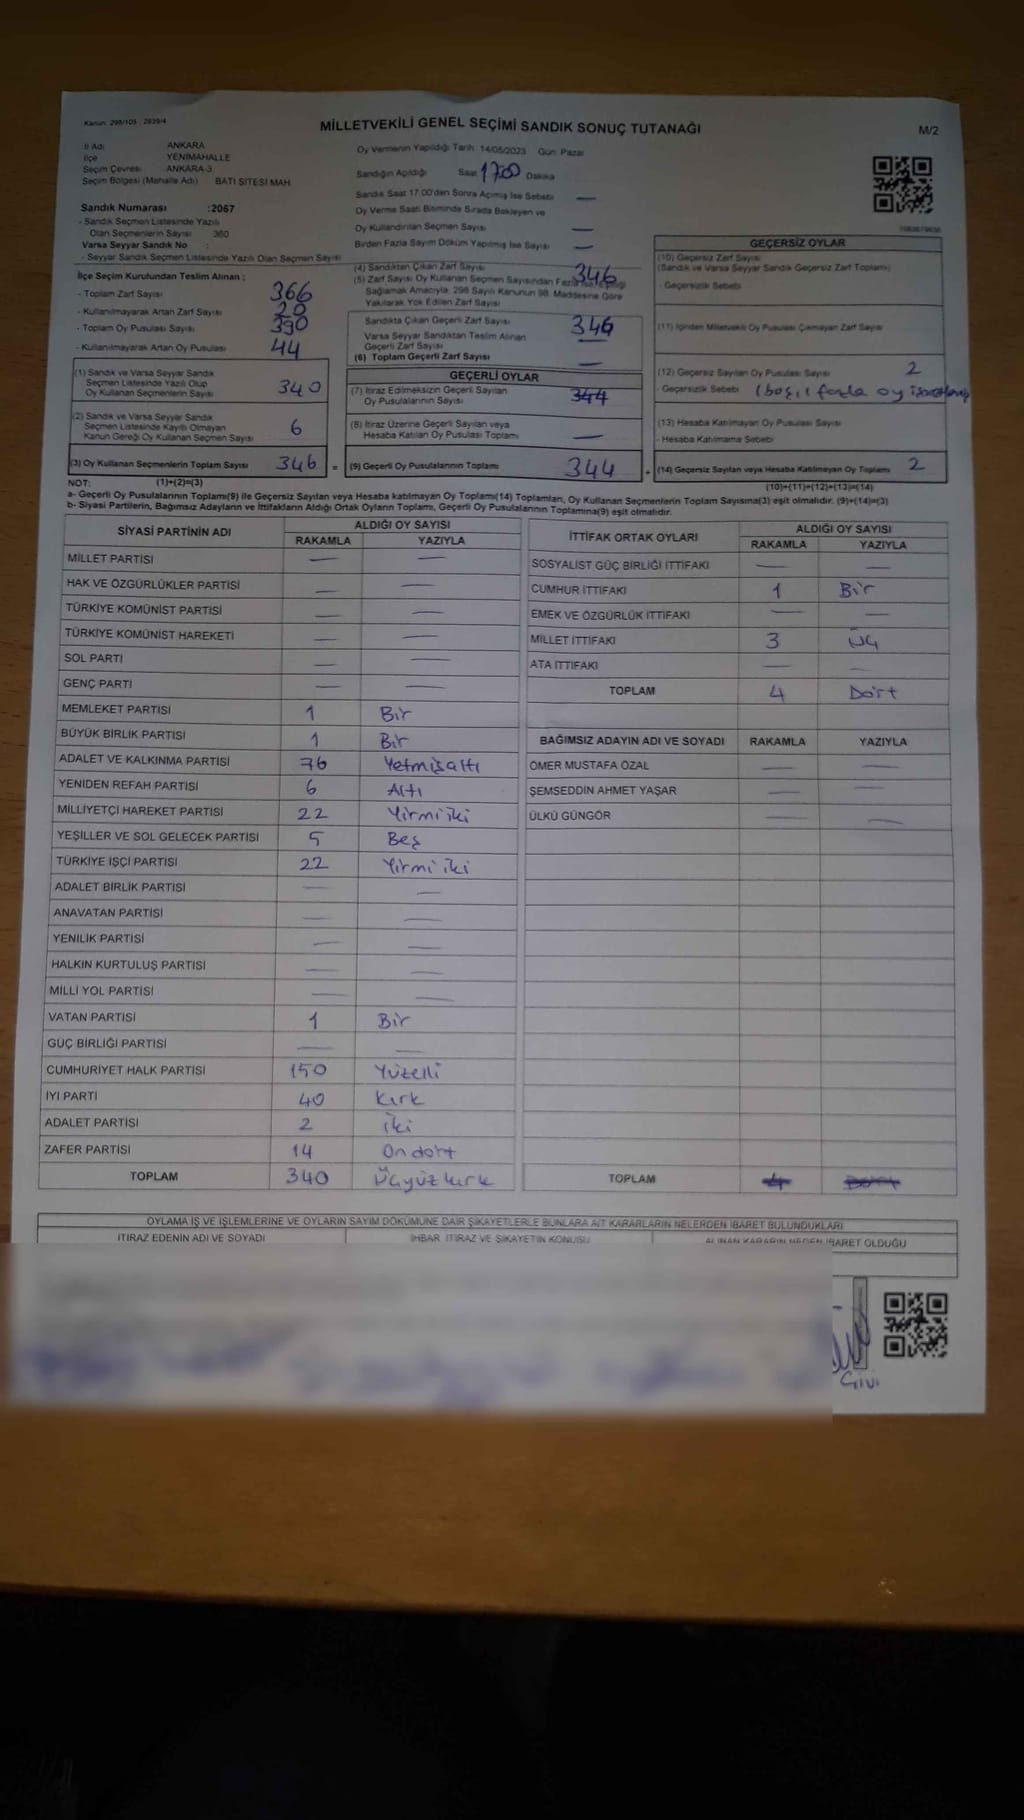 Kanun: 298/105 : 2839/4
MİLLETVEKİLİ GENEL SEÇİMİ SANDIK SONUÇ TUTANAĞI
M/2
İl Adı ANKARA
İlçe YENİMAHALLE
Seçim Çevresi ANKARA-3
Seçim Bölgesi (Mahalle Adı) BATI SİTESİ MAH.
Sandık Numarası :2067
- Sandık Seçmen Listesinde Yazılı
Olan Seçmenlerin Sayısı 360
Varsa Seyyar Sandık No :
- Seyyar Sandık Seçmen Listesinde Yazılı Olan Seçmen Sayısı
Oy Vermenin Yapıldığı Tarih 14/05/2023 Gün: Pazar
Sandığın Açıldığı Saat 17:00 Dakika
Sandık Saat 17.00'den Sonra Açılmış İse Sebebi —
Oy Verme Saati Bitiminde Sırada Bekleyen ve
Oy Kullandırılan Seçmen Sayısı —
Birden Fazla Sayım Döküm Yapılmış İse Sayısı —
İlçe Seçim Kurulundan Teslim Alınan ;
- Toplam Zarf Sayısı 366
- Kullanılmayarak Artan Zarf Sayısı 20
- Toplam Oy Pusulası Sayısı 390
- Kullanılmayarak Artan Oy Pusulası 44
(1) Sandık ve Varsa Seyyar Sandık
Seçmen Listesinde Yazılı Olup
Oy Kullanan Seçmenlerin Sayısı 340
(2) Sandık ve Varsa Seyyar Sandık
Seçmen Listesinde Kayıtlı Olmayan
Kanun Gereği Oy Kullanan Seçmen Sayısı 6
(3) Oy Kullanan Seçmenlerin Toplam Sayısı 346 =
(4) Sandıktan Çıkan Zarf Sayısı 346
(5) Zarf Sayısı Oy Kullanan Seçmen Sayısından Fazla ise, Eşitliği
Sağlamak Amacıyla, 298 Sayılı Kanunun 98. Maddesine Göre
Yakılarak Yok Edilen Zarf Sayısı
Sandıkta Çıkan Geçerli Zarf Sayısı 346
Varsa Seyyar Sandıktan Teslim Alınan
Geçerli Zarf Sayısı —
(6) Toplam Geçerli Zarf Sayısı —
GEÇERLİ OYLAR
(7) İtiraz Edilmeksizin Geçerli Sayılan
Oy Pusulalarının Sayısı 344
(8) İtiraz Üzerine Geçerli Sayılan veya
Hesaba Katılan Oy Pusulası Toplamı —
(9) Geçerli Oy Pusulalarının Toplamı 344 +
GEÇERSİZ OYLAR
(10) Geçersiz Zarf Sayısı
(Sandık ve Varsa Seyyar Sandık Geçersiz Zarf Toplamı)
- Geçersizlik Sebebi
(11) İçinden Milletvekili Oy Pusulası Çıkmayan Zarf Sayısı
(12) Geçersiz Sayılan Oy Pusulası Sayısı 2
- Geçersizlik Sebebi 1 boş, 1 fazla oy
(13) Hesaba Katılmayan Oy Pusulası Sayısı
- Hesaba Katılmama Sebebi
(14) Geçersiz Sayılan veya Hesaba Katılmayan Oy Toplamı 2
NOT: (1)+(2)=(3) (10)+(11)+(12)+(13)=(14)
a- Geçerli Oy Pusulalarının Toplamı(9) ile Geçersiz Sayılan veya Hesaba katılmayan Oy Toplamı(14) Toplamları, Oy Kullanan Seçmenlerin Toplam Sayısına(3) eşit olmalıdır. (9)+(14)=(3)
b- Siyasi Partilerin, Bağımsız Adayların ve İttifakların Aldığı Ortak Oyların Toplamı, Geçerli Oy Pusulalarının Toplamına(9) eşit olmalıdır.
SİYASİ PARTİNİN ADI ALDIĞI OY SAYISI
RAKAMLA YAZIYLA
MİLLET PARTİSİ — —
HAK VE ÖZGÜRLÜKLER PARTİSİ — —
TÜRKİYE KOMÜNİST PARTİSİ — —
TÜRKİYE KOMÜNİST HAREKETİ — —
SOL PARTİ — —
GENÇ PARTİ — —
MEMLEKET PARTİSİ 1 Bir
BÜYÜK BİRLİK PARTİSİ 1 Bir
ADALET VE KALKINMA PARTİSİ 76 Yetmişaltı
YENİDEN REFAH PARTİSİ 6 Altı
MİLLİYETÇİ HAREKET PARTİSİ 22 Yirmi iki
YEŞİLLER VE SOL GELECEK PARTİSİ 5 Beş
TÜRKİYE İŞÇİ PARTİSİ 22 Yirmi iki
ADALET BİRLİK PARTİSİ — —
ANAVATAN PARTİSİ — —
YENİLİK PARTİSİ — —
HALKIN KURTULUŞ PARTİSİ — —
MİLLİ YOL PARTİSİ — —
VATAN PARTİSİ 1 Bir
GÜÇ BİRLİĞİ PARTİSİ — —
CUMHURİYET HALK PARTİSİ 150 Yüzelli
İYİ PARTİ 40 Kırk
ADALET PARTİSİ 2 İki
ZAFER PARTİSİ 14 Ondört
TOPLAM 340 Üçyüz kırk
İTTİFAK ORTAK OYLARI ALDIĞI OY SAYISI
RAKAMLA YAZIYLA
SOSYALİST GÜÇ BİRLİĞİ İTTİFAKI — —
CUMHUR İTTİFAKI 1 Bir
EMEK VE ÖZGÜRLÜK İTTİFAKI — —
MİLLET İTTİFAKI 3 Üç
ATA İTTİFAKI — —
TOPLAM 4 Dört
BAĞIMSIZ ADAYIN ADI VE SOYADI RAKAMLA YAZIYLA
ÖMER MUSTAFA ÖZAL — —
ŞEMSEDDİN AHMET YAŞAR — —
ÜLKÜ GÜNGÖR — —
TOPLAM 4 Dört
OYLAMA İŞ VE İŞLEMLERİNE VE OYLARIN SAYIM DÖKÜMÜNE DAİR ŞİKAYETLERLE BUNLARA AİT KARARLARIN NELERDEN İBARET BULUNDUKLARI
İTİRAZ EDENİN ADI VE SOYADI İHBAR, İTİRAZ VE ŞİKAYETİN KONUSU ALINAN KARARIN NEDEN İBARET OLDUĞU